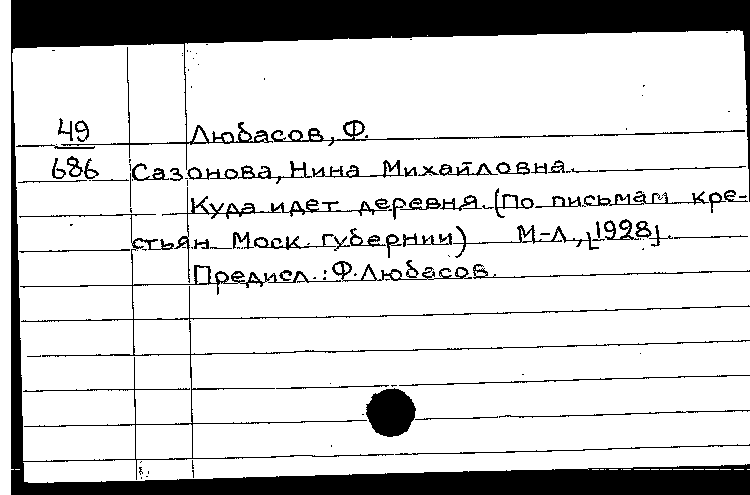 49 Любасов, Ф.
686 Сазонова, Нина Михайловна.
Куда идет деревня. (По письмам кре-
стьян Моск. губернии) М-Л., [1928].
Предисл.: Ф. Любасов.